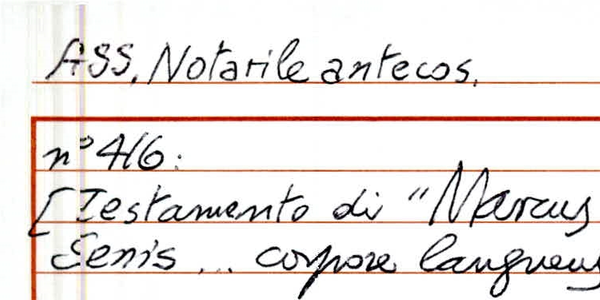 ASS, Notarile antecos.
n° 416:
[Testamento di "Marcus
Senis ... corpore languens